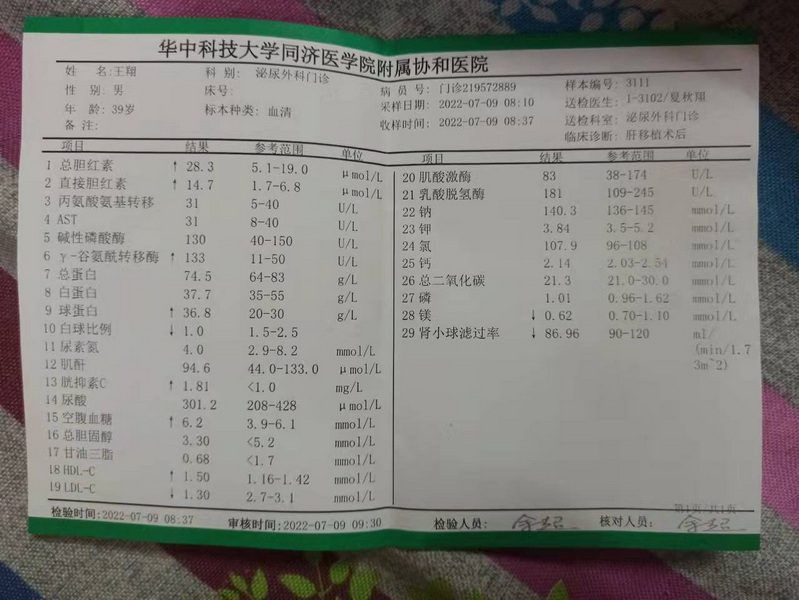 华中科技大学同济医学院附属协和医院
姓 名:王翔 科 别: 泌尿外科门诊 病 员 号: 门诊219572889 样本编号: 3111
性 别: 男 床号: 采样日期: 2022-07-09 08:10 送检医生: I-3102/夏秋翔
年 龄: 39岁 标本种类: 血清 收样时间: 2022-07-09 08:37 送检科室: 泌尿外科门诊
备 注: 临床诊断: 肝移植术后
项目 结果 参考范围 单位
1 总胆红素 ↑ 28.3 5.1-19.0 μmol/L
2 直接胆红素 ↑ 14.7 1.7-6.8 μmol/L
3 丙氨酸氨基转移 31 5-40 U/L
4 AST 31 8-40 U/L
5 碱性磷酸酶 130 40-150 U/L
6 γ-谷氨酰转移酶 ↑ 133 11-50 U/L
7 总蛋白 74.5 64-83 g/L
8 白蛋白 37.7 35-55 g/L
9 球蛋白 ↑ 36.8 20-30 g/L
10 白球比例 ↓ 1.0 1.5-2.5
11 尿素氮 4.0 2.9-8.2 mmol/L
12 肌酐 94.6 44.0-133.0 μmol/L
13 胱抑素C ↑ 1.81 <1.0 mg/L
14 尿酸 301.2 208-428 μmol/L
15 空腹血糖 ↑ 6.2 3.9-6.1 mmol/L
16 总胆固醇 3.30 <5.2 mmol/L
17 甘油三脂 0.68 <1.7 mmol/L
18 HDL-C ↑ 1.50 1.16-1.42 mmol/L
19 LDL-C ↓ 1.30 2.7-3.1 mmol/L
项目 结果 参考范围 单位
20 肌酸激酶 83 38-174 U/L
21 乳酸脱氢酶 181 109-245 U/L
22 钠 140.3 136-145 mmol/L
23 钾 3.84 3.5-5.2 mmol/L
24 氯 107.9 96-108 mmol/L
25 钙 2.14 2.03-2.54 mmol/L
26 总二氧化碳 21.3 21.0-30.0 mmol/L
27 磷 1.01 0.96-1.62 mmol/L
28 镁 ↓ 0.62 0.70-1.10 mmol/L
29 肾小球滤过率 ↓ 86.96 90-120 ml/
(min/1.7
3m^2)
第1页/共1页
检验时间:2022-07-09 08:37 审核时间:2022-07-09 09:30 检验人员: 核对人员: